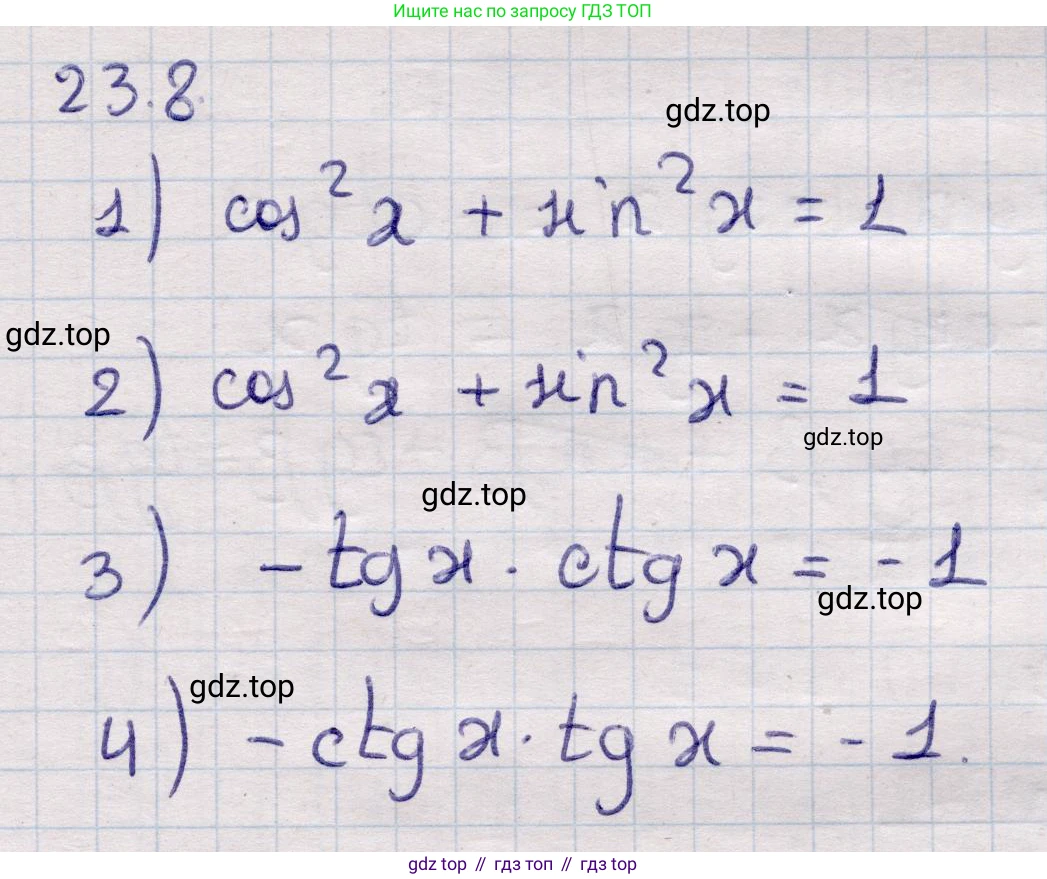 Ищите нас по запросу ГДЗ ТОП
23.8.
gdz.top
1) cos²x + sin²x = 1
gdz.top
2) cos²x + sin²x = 1
gdz.top
gdz.top
3) - tg x · ctg x = - 1
gdz.top
gdz.top
4) - ctg x · tg x = - 1.
gdz top // гдз топ // gdz top